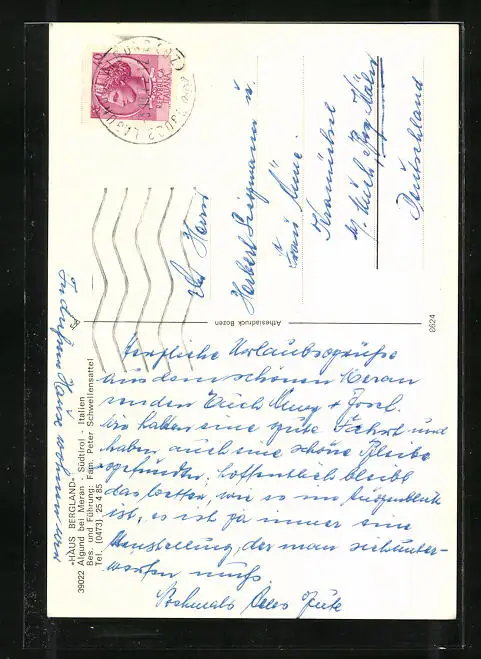 Herzliche Urlaubsgrüße
aus dem schönen Meran
senden Euch
Wir haben eine gute Fahrt und
haben auch eine schöne Bleibe
gefunden, hoffentlich bleibt
das Wetter, wie es im Augenblick
ist, es ist ja immer eine
der man sich unter-
werfen muß.
Nochmals Alles Gute
In diesem Hause wohnen wir
»HAUS BERGLAND«
39022 Algund bei Meran · Südtirol · Italien
Bes. und Führung: Fam. Peter Schwellensattel
Tel. (0473) 25 4 85
Athesiadruck Bozen
8624
Herrn
Herbert u.
Frau
Deutschland